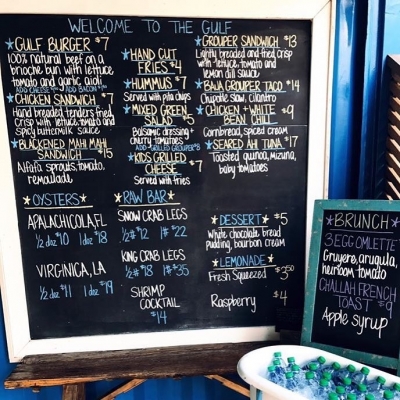 WELCOME TO THE GULF
GULF BURGER $7
100% natural beef on a
brioche bun with lettuce
tomato and garlic aioli
CHICKEN SANDWICH $7
Hand breaded tenders fried
Crisp with lettuce, tomato and
Spicy buttermilk sauce
BLACKENED MAHI MAHI
SANDWICH $15
Alfafa sprouts, tomato,
remoulade
HAND CUT
FRIES $4
HUMMUS $7
Served with pita chips
MIXED GREEN
SALAD $5
Balsamic dressing +
cherry tomatoes
ADD GRILLED GROUPER $8
KIDS GRILLED
CHEESE $7
Served with fries
GROUPER SANDWICH $13
Lightly breaded and fried crisp
with lettuce, tomato and
lemon dill sauce
BAJA GROUPER TACO $14
Chipotle slaw, cilantro
CHICKEN + WHITE $9
BEAN CHILI
Cornbread, spiced cream
SEARED AHI TUNA $17
Toasted quinoa, mizuna,
baby tomatoes
OYSTERS
APALACHICOLA, FL
1/2 doz $10 1 doz $18
VIRGINICA, LA
1/2 doz $11 1 doz $19
RAW BAR
SNOW CRAB LEGS
1/2# $12 1# $22
KING CRAB LEGS
1/2# $18 1# $35
SHRIMP
COCKTAIL
$14
DESSERT $5
White chocolate bread
pudding, bourbon cream
LEMONADE
Fresh Squeezed $3.50
Raspberry $4
BRUNCH
3 EGG OMLETTE
Gruyere, arugula,
heirloom tomato
CHALLAH FRENCH
TOAST $9
Apple syrup